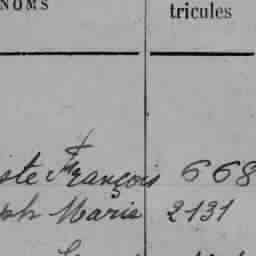 NOMS tricules
iste François 668
ph Marie 2131